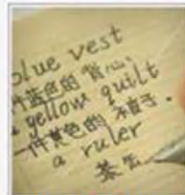 blue vest
件蓝色的 背心
a yellow quilt
一件黄色的 被子.
a ruler